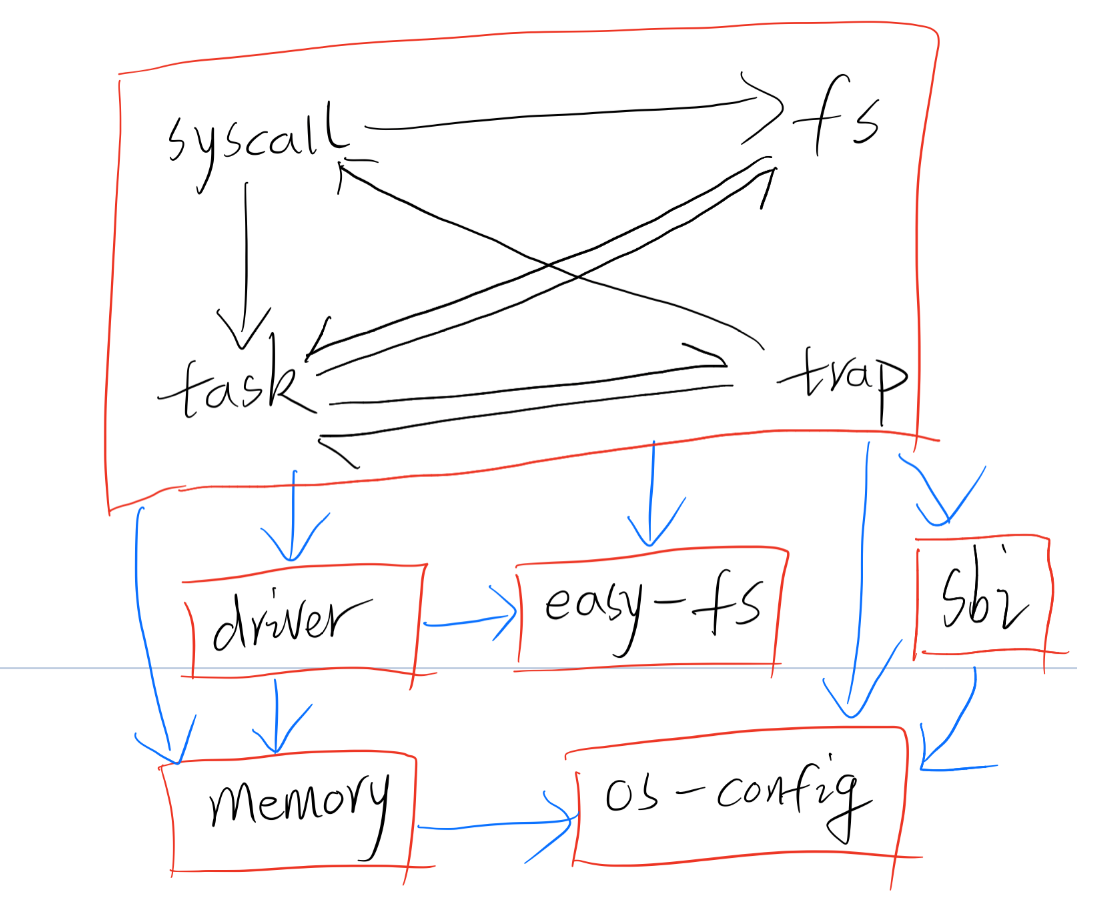 syscall
fs
task
trap
driver
easy-fs
sbi
memory
os-config